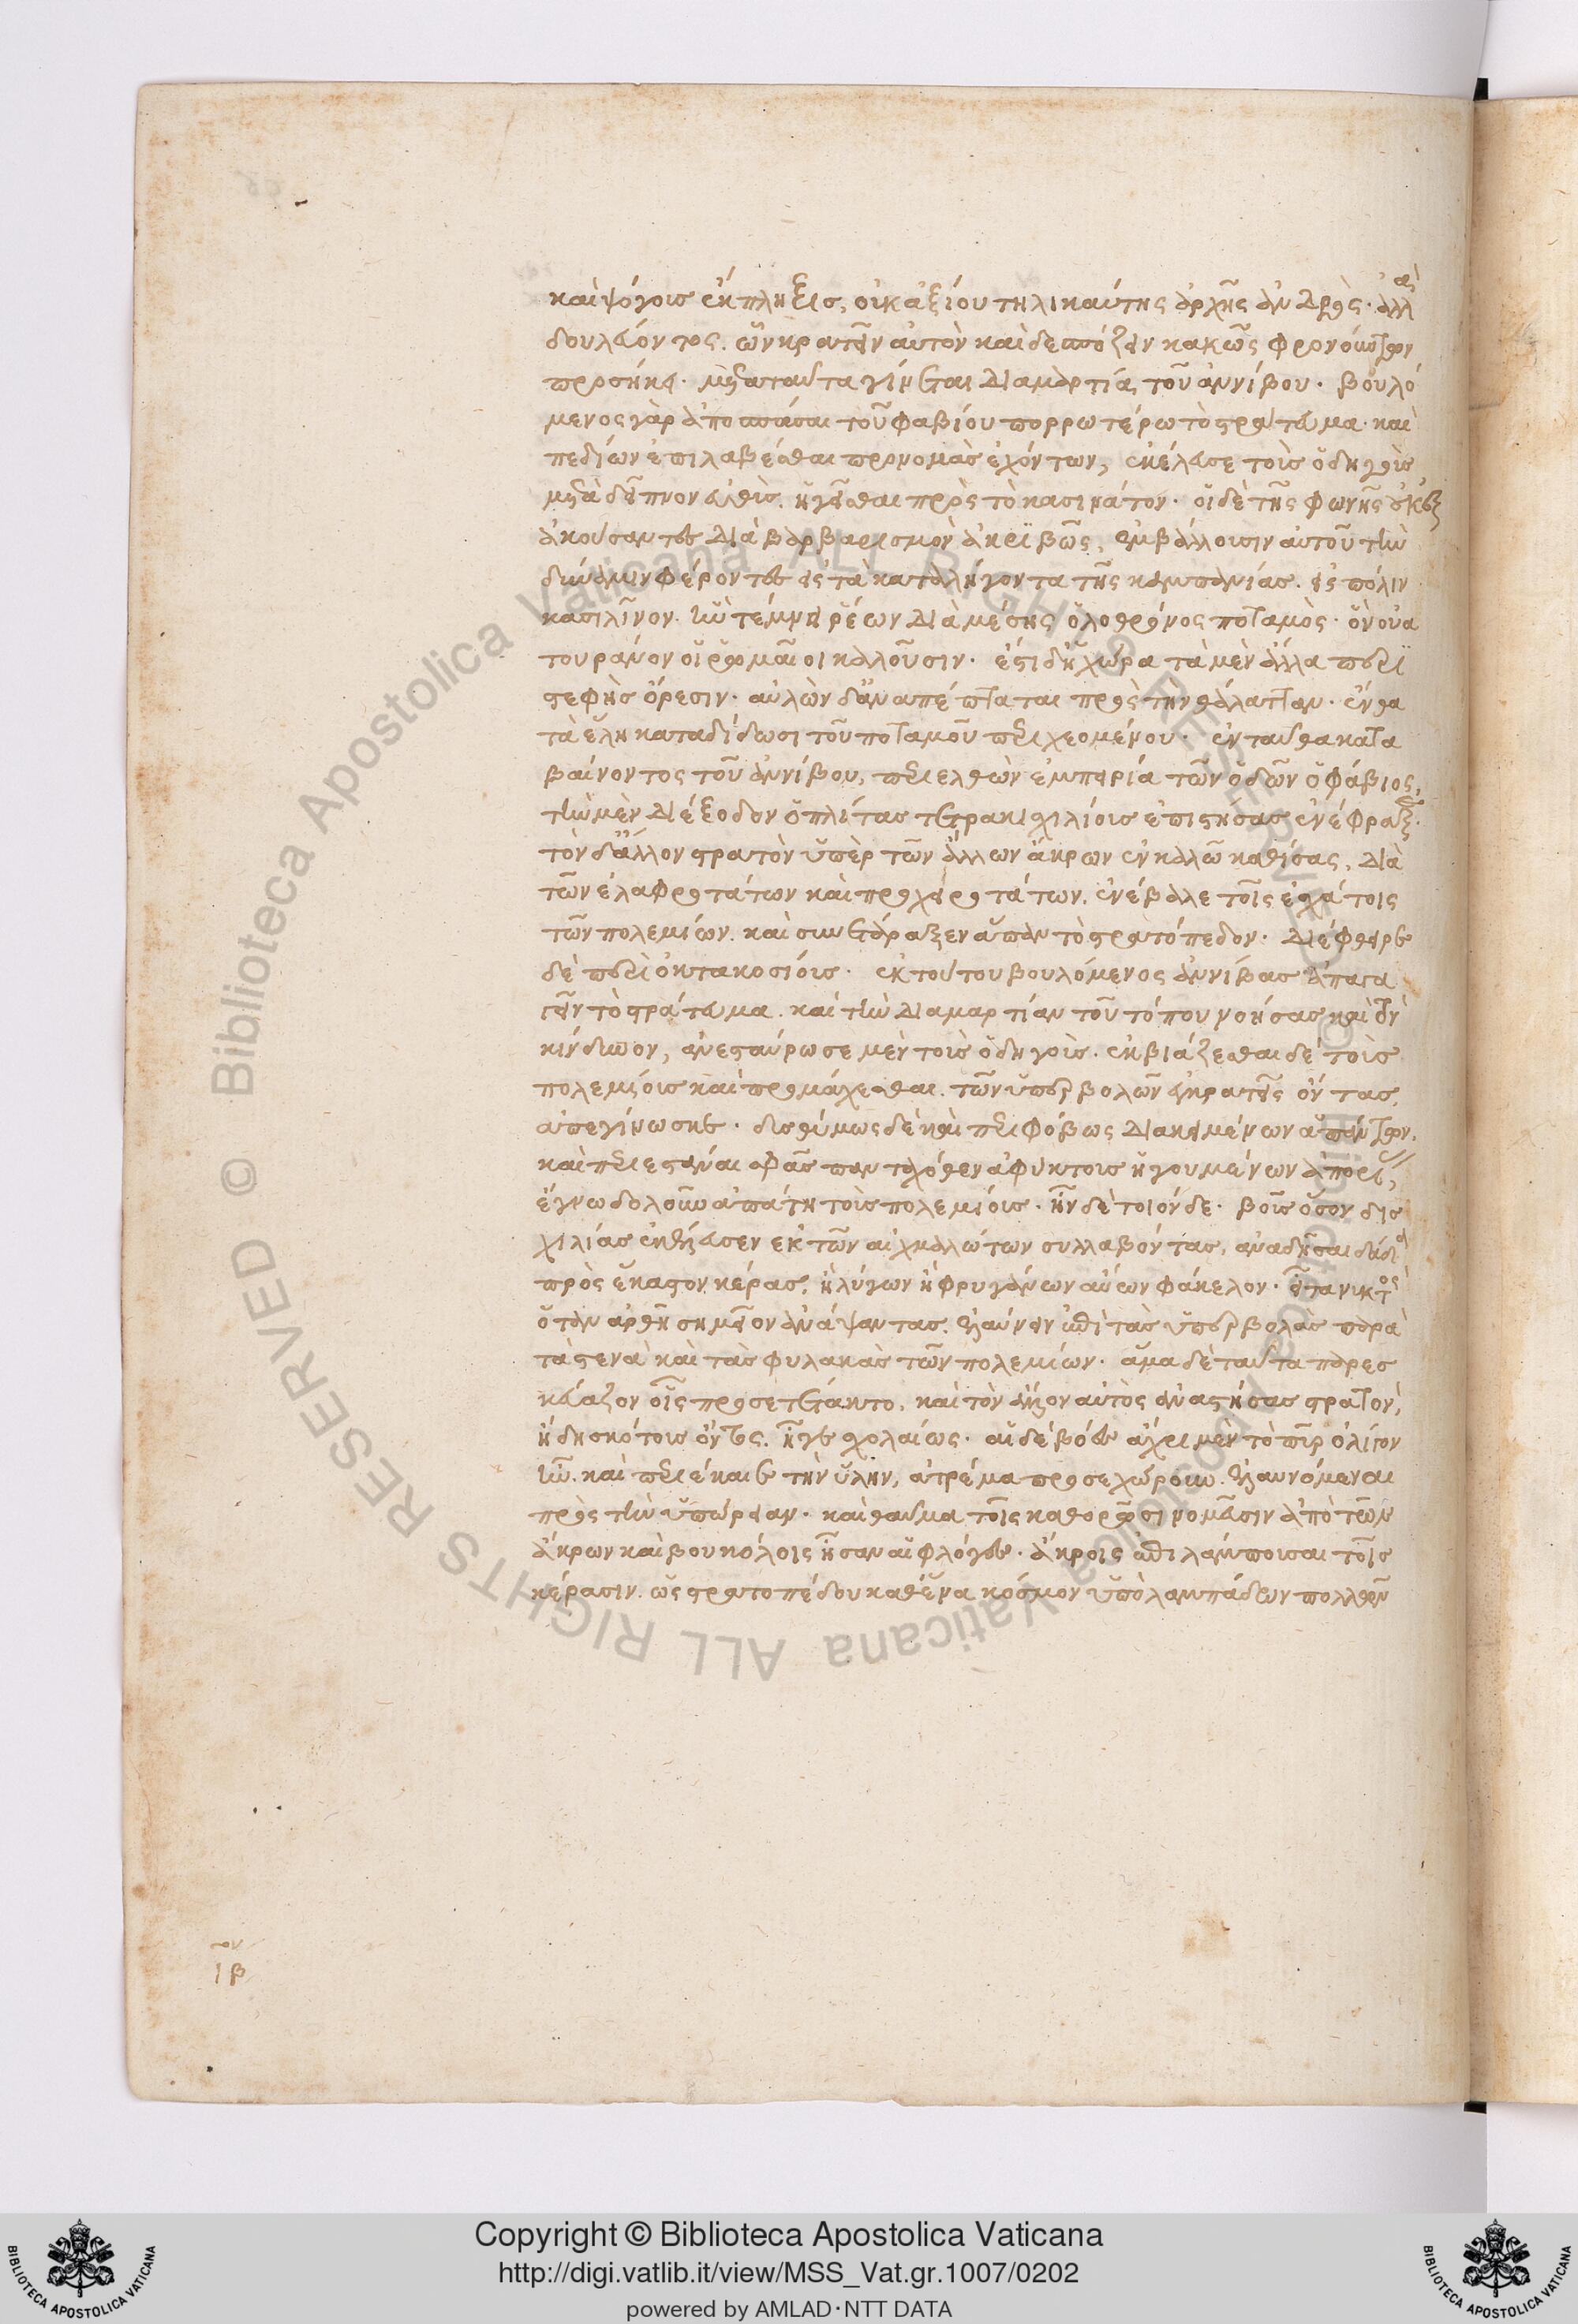 καὶ ψόγοις ἔκπληξις, οὐκ ἀξίου τηλικαύτης ἀρχῆς ἀνδρὸς· ἀλλὰ
δουλεύοντος. ὧν κρατεῖν αὐτὸν καὶ δεσπόζειν κακῶς φρονούντων
προσήκει· μετὰ ταῦτα γίνεται διαμαρτία τοῦ ἀννίβου· βουλό
μενος γὰρ ἀποσπάσαι τοῦ φαβίου πορρωτέρω τὸ στράτευμα· καὶ
πεδίων ἐπιλαβέσθαι προνομὰς ἐχόντων, ἐκέλευσε τοὺς ὁδηγοὺς
μετὰ δεῖπνον εὐθὺς ἡγεῖσθαι πρὸς τὸ κασινάτον· οἱ δὲ τῆς φωνῆς οὐκ
ἀκούσαντες διὰ βαρβαρισμὸν ἀκριβῶς, ἐμβάλλουσιν αὐτοῦ τὴν
δύναμιν φέροντες εἰς τὰ καταλήγοντα τῆς καμπανίας. εἰς πόλιν
κασιλῖνον. ἣν τέμνει ῥέων διὰ μέσης ὁλοθρόνος ποταμὸς· ὃν οὐα
τουράνον οἱ ῥωμαῖοι καλοῦσιν· ἔστι δ' ἡ χώρα τὰ μὲν ἄλλα περι
στεφὴς ὄρεσιν· αὐλὼν δ' ἀναπέπταται πρὸς τὴν θάλατταν· ἔνθα
τὰ ἕλη καταδίδωσι τοῦ ποταμοῦ περιχεομένου· ἐνταῦθα κατα
βαίνοντος τοῦ ἀννίβου, περιελθὼν ἐμπειρία τῶν ὁδῶν ὁ φάβιος,
τὴν μὲν διέξοδον ὁπλίτας τετρακισχιλίους ἐπιστήσας ἐνέφραξε·
τὸν δ' ἄλλον στρατὸν ὑπὲρ τῶν ἄλλων ἄκρων ἐν καλῶ καθίσας, διὰ
τῶν ἐλαφροτάτων καὶ προχειροτάτων. ἐνέβαλε τοῖς ἐσχάτοις
τῶν πολεμίων. καὶ συνετάραξεν ἅπαν τὸ στρατόπεδον· διέφθειρε
δὲ περὶ ὀκτακοσίους· ἐκ τούτου βουλόμενος ἀννίβας ἀπαγα
γεῖν τὸ στράτευμα. καὶ τὴν διαμαρτίαν τοῦ τόπου νοήσας καὶ τὸν
κίνδυνον, ἀνεσταύρωσε μὲν τοὺς ὁδηγούς. ἐκβιάζεσθαι δὲ τοὺς
πολεμίους καὶ προμάχεσθαι. τῶν ὑπερβολῶν ἐγκρατεῖς ὄντας,
ἀπεγίνωσκε· δυσθύμως δὲ καὶ περιφόβως διακειμένων ἁπάντων.
καὶ περιεστάναι σφᾶς πανταχόθεν ἀφύκτους ἡγουμένων ἀπορίας,
ἔγνω δολοῦν ἀπάτη τοὺς πολεμίους· ἦν δὲ τοιόνδε· βοῦς ὅσον δις
χιλίας ἐκέλευσεν ἐκ τῶν αἰχμαλώτων συλλαβόντας, ἀναδῆσαι δᾶδα
πρὸς ἕκαστον κέρας. ἢ λύγων ἢ φρυγάνων αὔων φάκελον· εἶτα νυκτὸς
ὅταν ἀρθῆ σημεῖον ἀνάψαντας. ἐλαύνειν ἐπὶ τὰς ὑπερβολὰς παρὰ
τὰ στενὰ καὶ τὰς φυλακὰς τῶν πολεμίων· ἅμα δὲ ταῦτα παρεσ
κεύαζον οἷς προσετέτακτο. καὶ τὸν ἄλλον αὐτὸς ἀναστήσας στρατὸν,
ἤδη σκότους ὄντος. ἦγε σχολαίως· αἱ δὲ βόες ἄχρι μὲν τὸ πῦρ ὀλίγον
ἦν. καὶ περιέκαιε τὴν ὕλην, ἀτρέμα προσεχώρουν. ἐλαυνόμεναι
πρὸς τὴν ὑπώρειαν· καὶ θαῦμα τοῖς καθορῶσι νομεῦσιν ἀπὸ τῶν
ἄκρων καὶ βουκόλοις ἦσαν αἱ φλόγες· ἄκροις ἐπιλάμπουσαι τοῖς
κέρασιν. ὡς στρατοπέδου καθ' ἕνα κόσμον ὑπὸ λαμπάδων πολλῶν
ιβον
Copyright © Biblioteca Apostolica Vaticana
http://digi.vatlib.it/view/MSS_Vat.gr.1007/0202
powered by AMLAD·NTT DATA